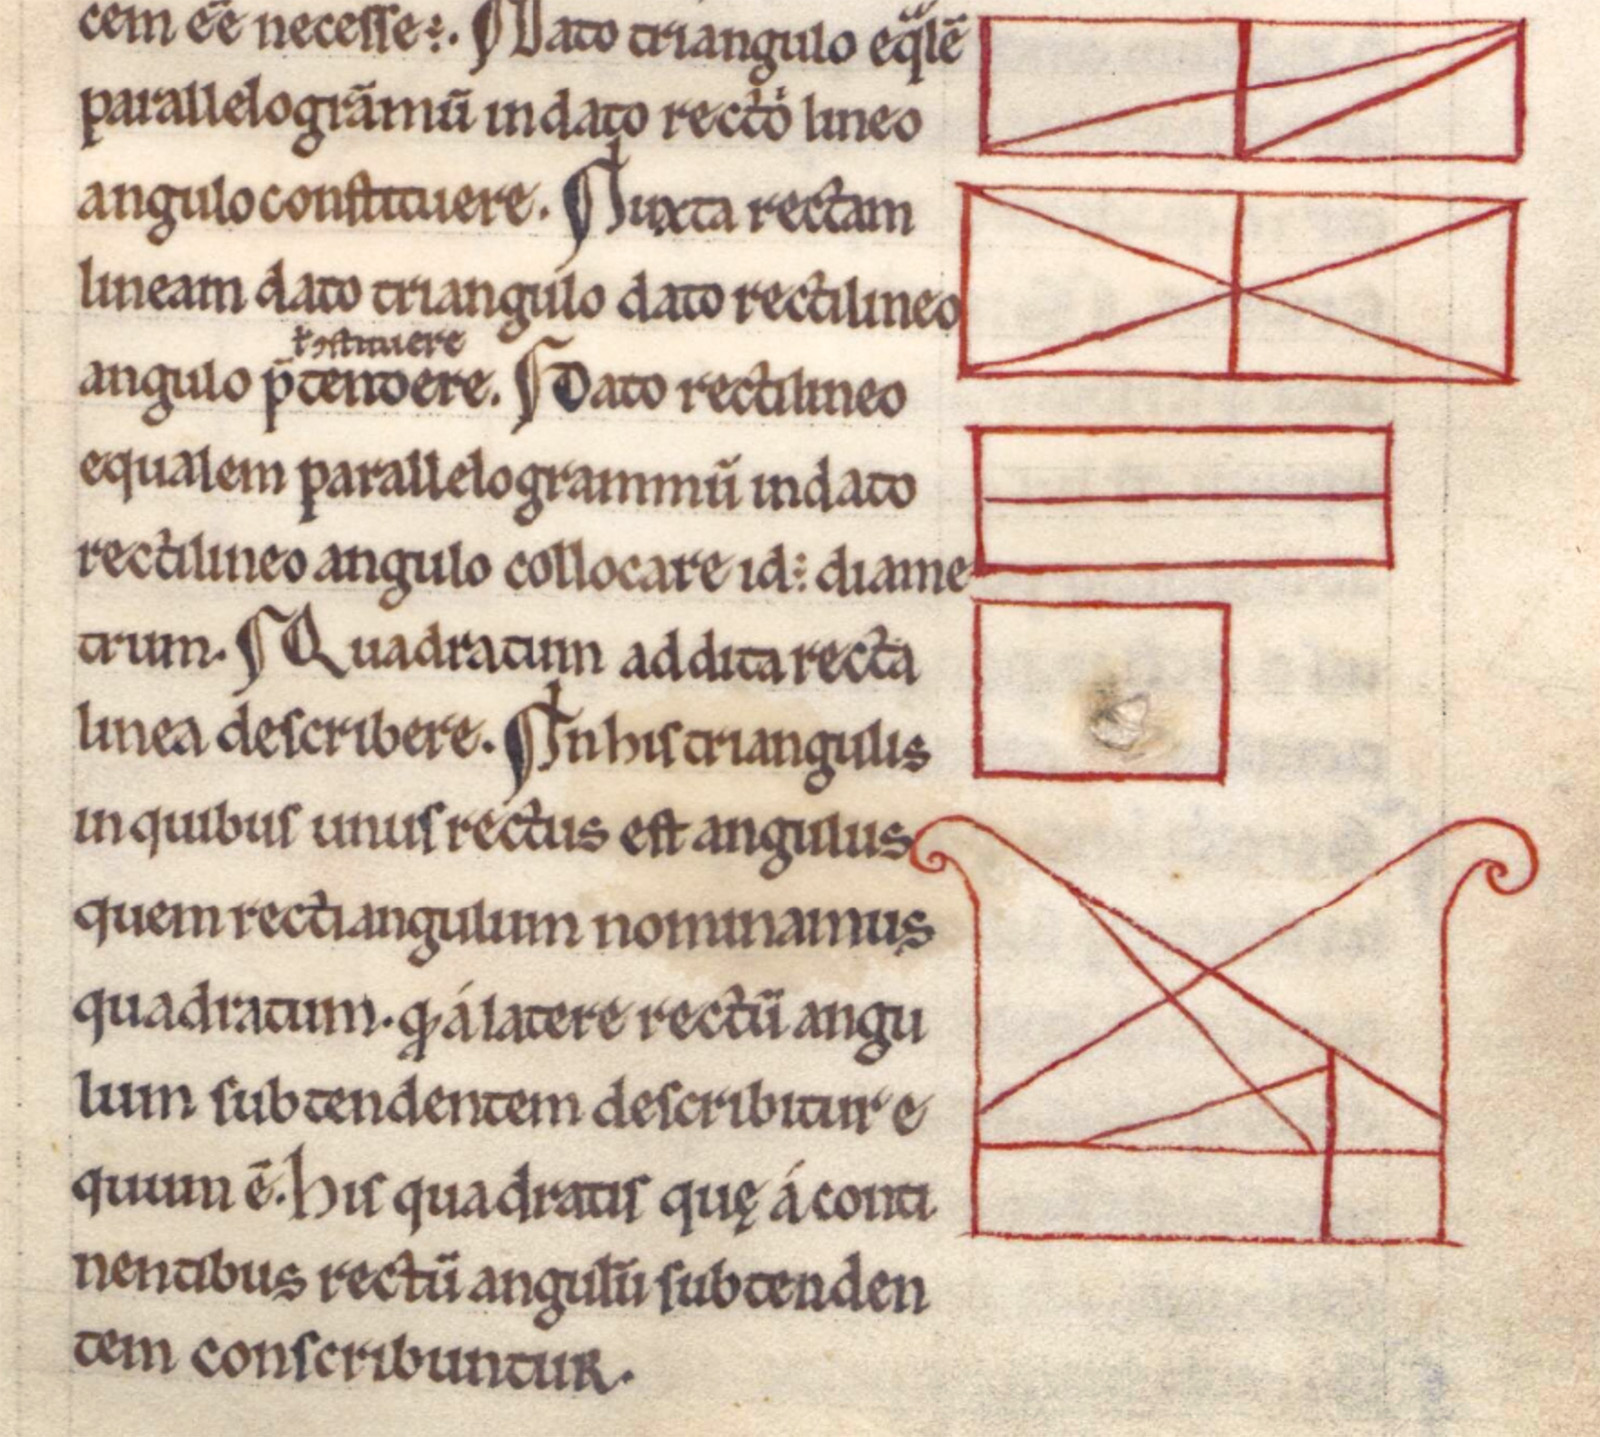 cem eē necesse:· Dato triangulo eq̄lē
parallelogrāmū in dato recto lineo
angulo constituere. Iuxta rectam
lineam dato triangulo dato rectilineo
angulo p̄tendere. Dato rectilineo
equalem parallelogrammū in dato
rectilineo angulo collocare id: diame
trum. Quadratum addita recta
linea describere. In his triangulis
in quibus unus rectus est angulus
quem rectiangulum nominamus
quadratum. á latere rectū angu
lum subtendentem describitur e
quum ē. his quadratis quę á conti
nentibus rectū angulū subtenden
tem conscribuntur.